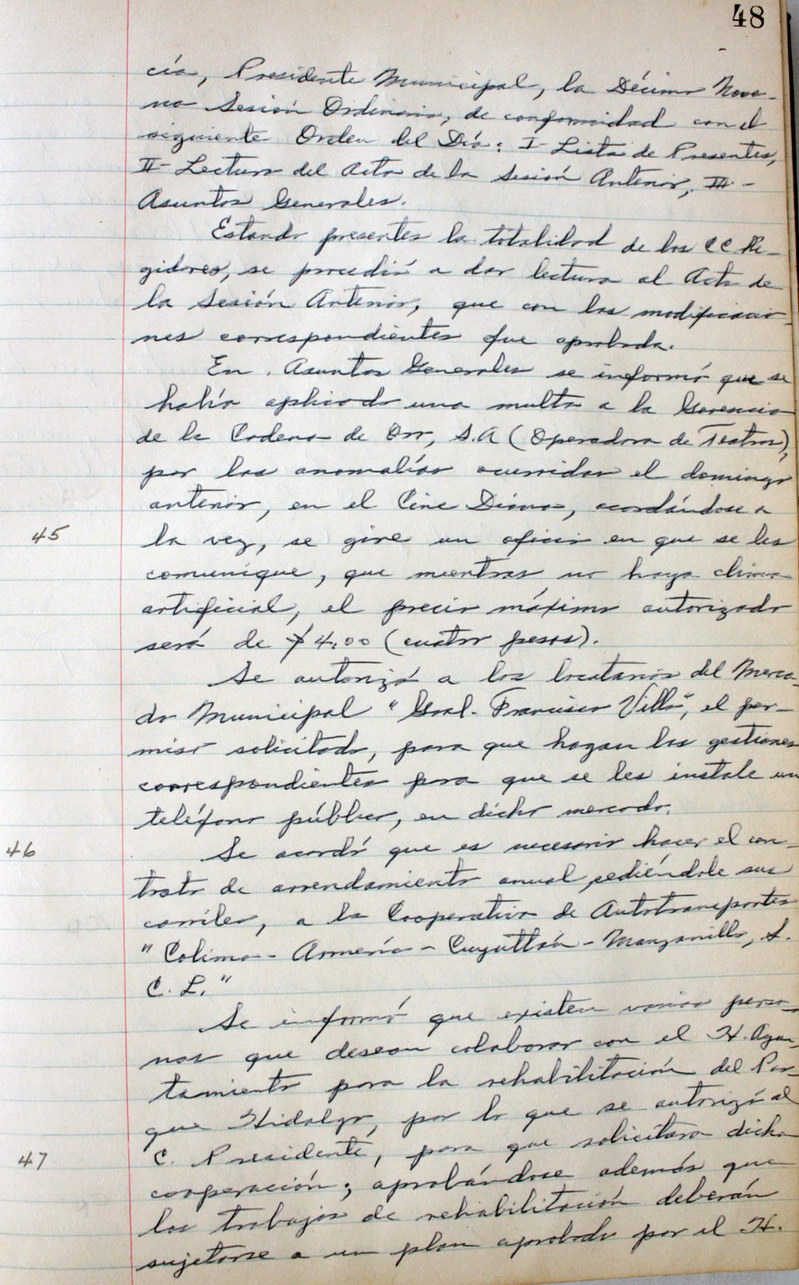 48
cía, Presidente Municipal, la Décima Nove-
na Sesión Ordinaria, de conformidad con el
siguiente Orden del Día: I- Lista de Presentes,
II- Lectura del Acta de la Sesión Anterior, III-
Asuntos Generales.
Estando presentes la totalidad de los CC Re-
gidores, se procedió a dar lectura al Acta de
la Sesión Anterior, que con las modificacio-
nes correspondientes fue aprobada.
En Asuntos Generales se informó que se
había aplicado una multa a la Gerencia
de la Cadena de Oro, S.A (Operadora de Teatros),
por las anomalías ocurridas el domingo
anterior, en el Cine Diana, acordándose a
45
la vez, se gire un oficio en que se les
comunique, que mientras no haya clima
artificial, el precio máximo autorizado
será de $4.00 (cuatro pesos).
Se autorizó a los locatarios del Merca-
do Municipal "Gral. Francisco Villa", el per-
miso solicitado, para que hagan las gestiones
correspondientes para que se les instale un
teléfono público, en dicho mercado.
46
Se acordó que es necesario hacer el con-
trato de arrendamiento anual, cediéndole sus
carriles, a la Cooperativa de Autotransportes
"Colima - Armería - Cuyutlán - Manzanillo, S.
C. L."
Se informó que existen varias perso-
nas que desean colaborar con el H. Ayun-
tamiento para la rehabilitación del Par-
que Hidalgo, por lo que se autorizó al
47
C. Presidente, para que solicitara dicha
cooperación; aprobándose además que
los trabajos de rehabilitación deberán
sujetarse a un plan aprobado por el H.